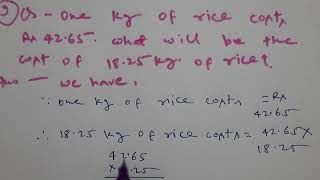 Q- One kg of rice costs
Rs 42.65. what will be the
cost of 18.25 kg. of rice?
Ans — we have,
∵ one kg of rice costs = Rs
42.65
∴ 18.25 kg of rice costs = 42.65 ×
18.25
42.65
.25